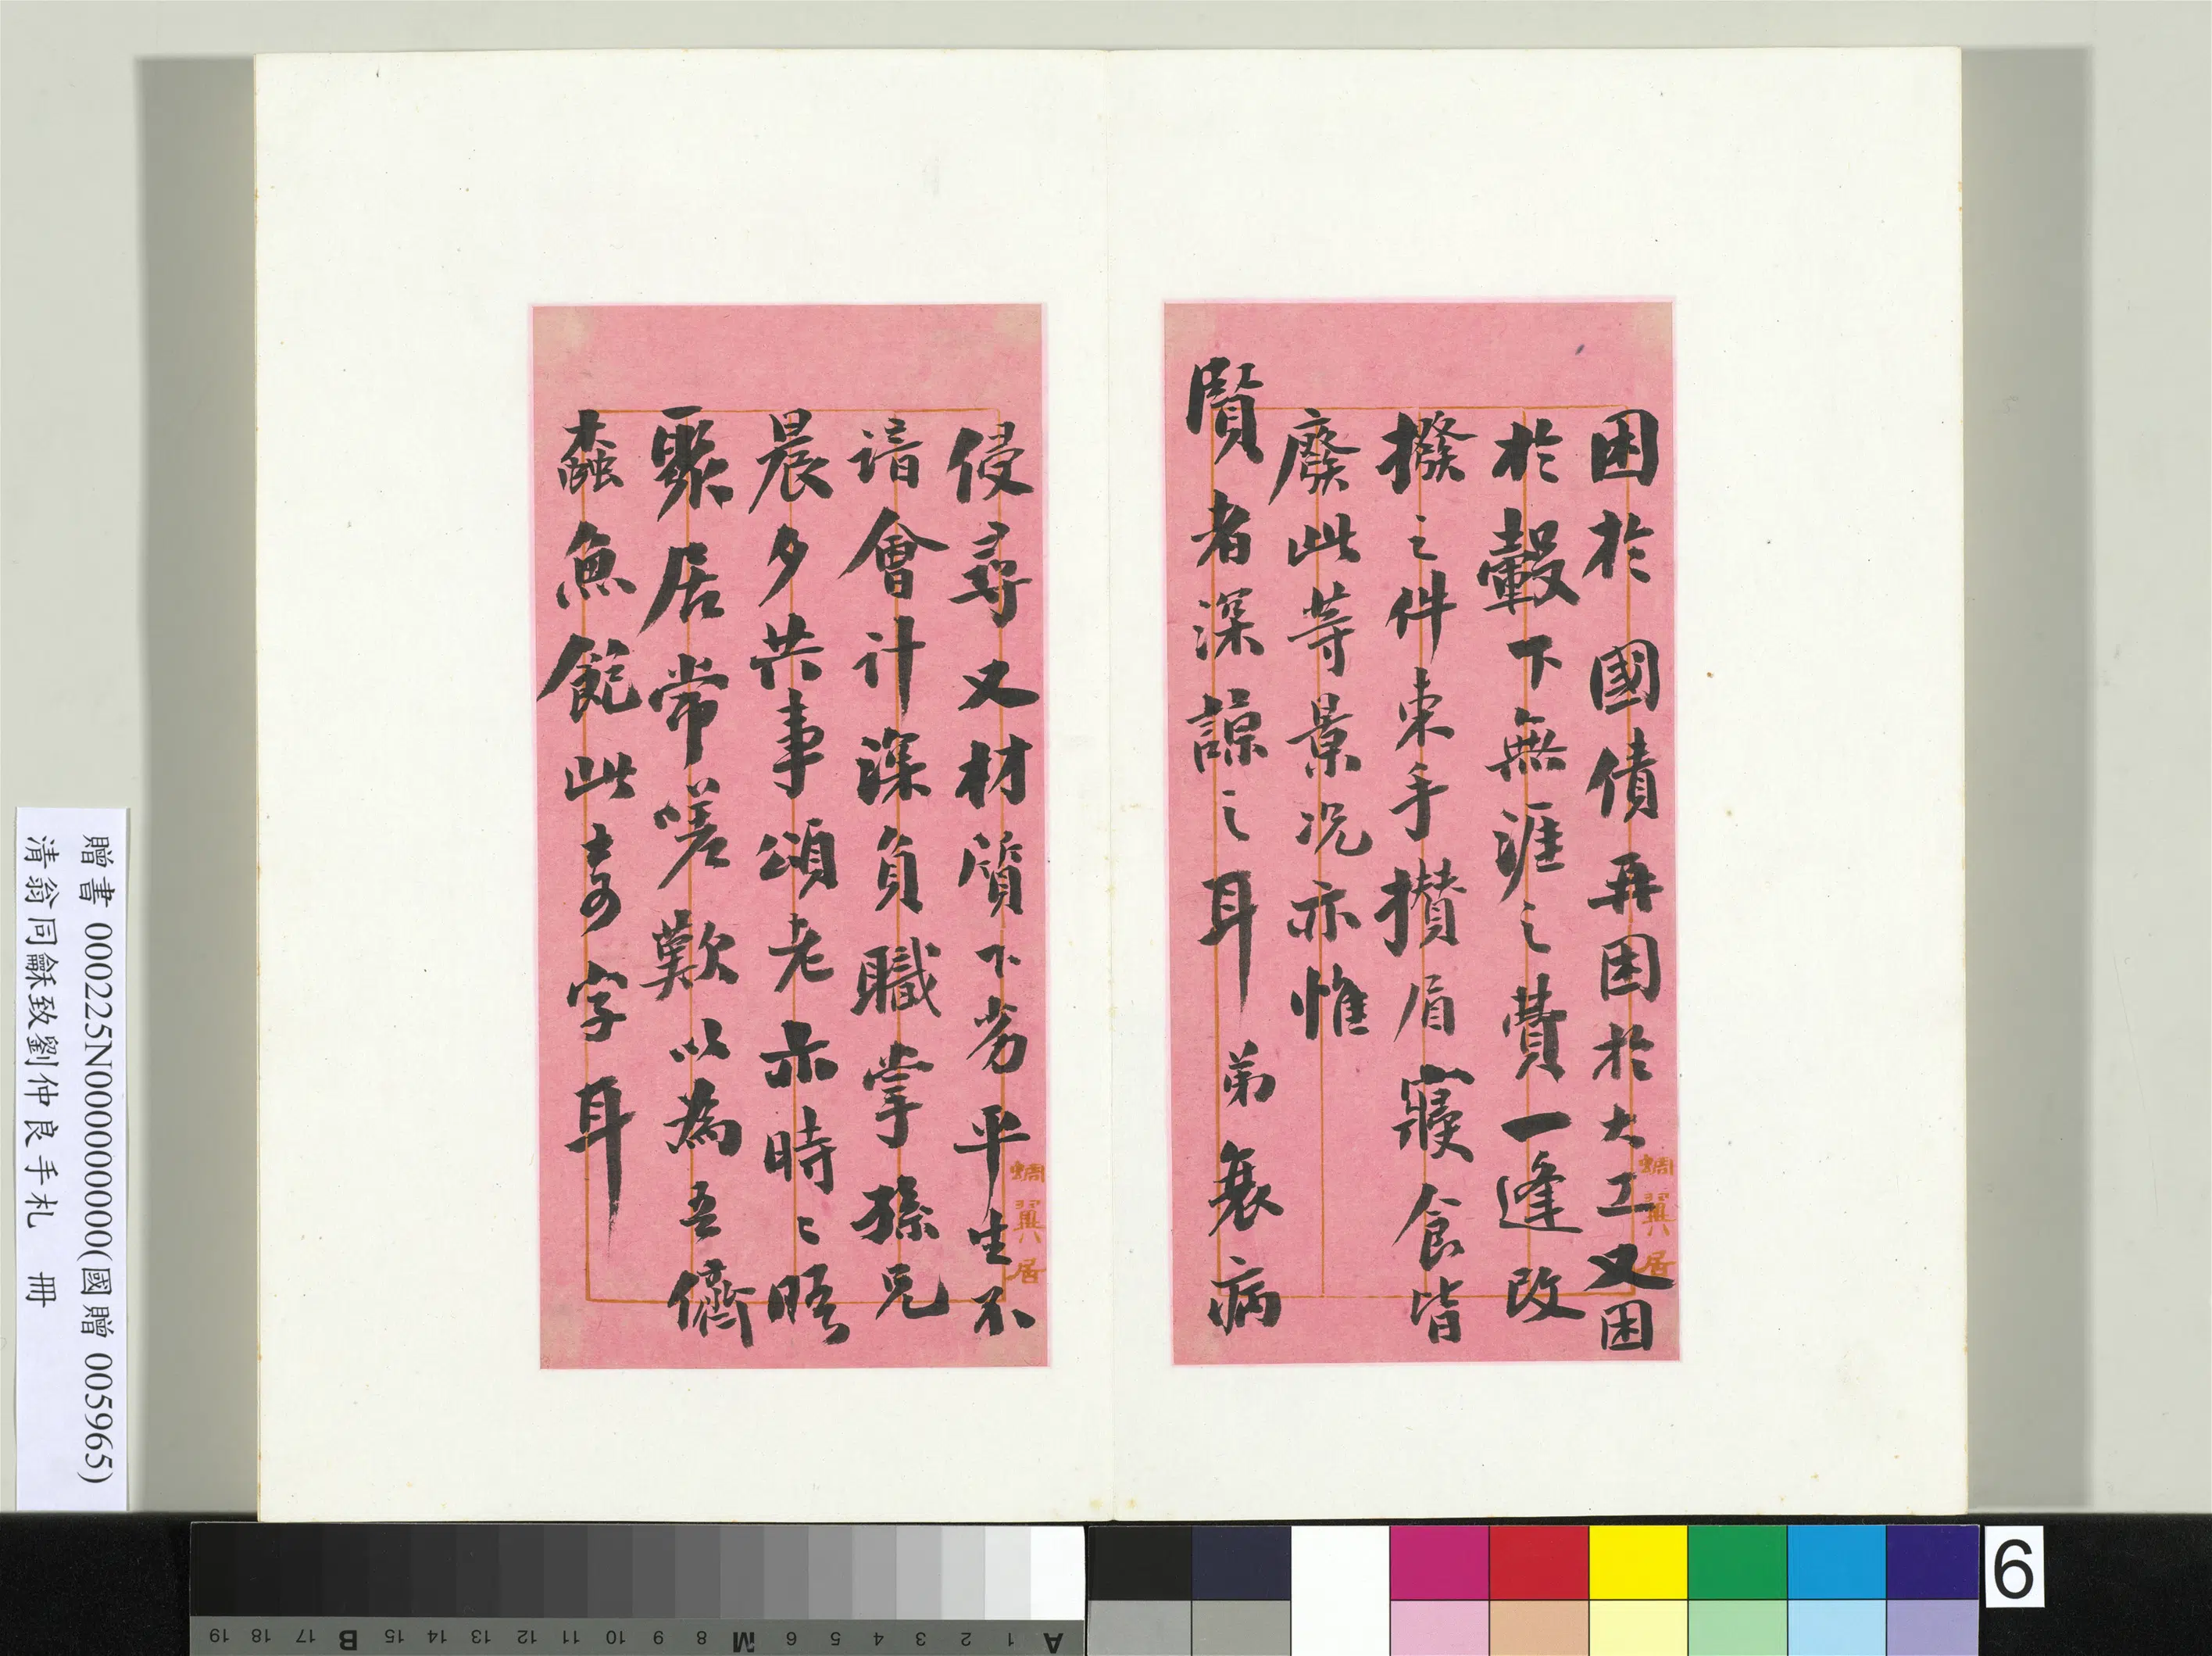 困於 國債再困於大工又困
於轂下無涯之費一逢改
撥之件束手攢眉寢食皆
廢此等景況亦惟
賢者深諒之耳 弟衰病
蜩翼居
侵尋又材質下劣平生不
諳會計深負職掌孫兄
晨夕共事頌老亦時時晤
聚居常嗟歎以為吾儕
蠹魚飽此字耳
蜩翼居
贈書 000225N000000000(國贈 005965)
清翁同龢致劉仲良手札 冊
A 1 2 3 4 5 6 M 8 9 10 11 12 13 14 15 B 17 18 19
6